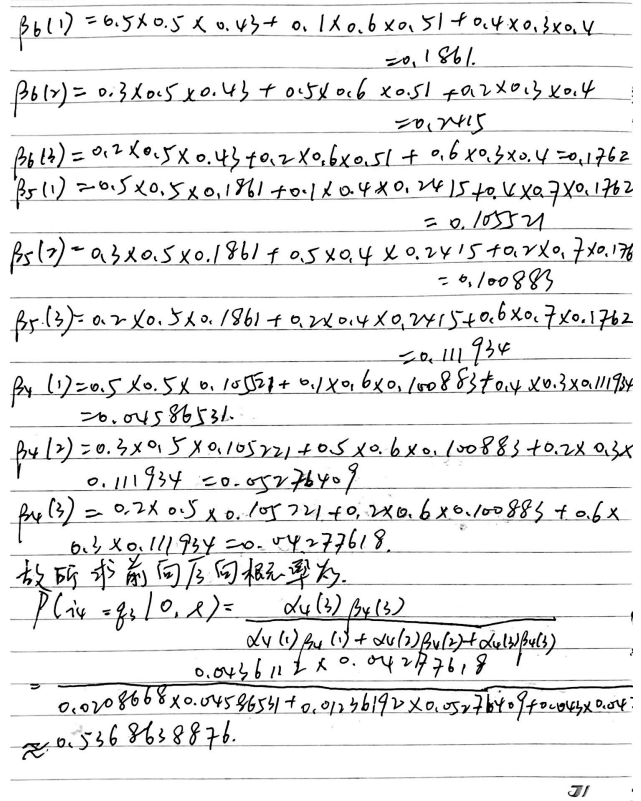 β6(1) = 0.5×0.5×0.43 + 0.1×0.6×0.51 + 0.4×0.3×0.4
=0.1861.
β6(2) = 0.3×0.5×0.43 + 0.5×0.6×0.51 + 0.2×0.3×0.4
=0.2415
β6(3) = 0.2×0.5×0.43+0.2×0.6×0.51 + 0.6×0.3×0.4 =0.1762
β5(1) =0.5×0.5×0.1861 +0.1×0.4×0.2415+0.4×0.7×0.1762
= 0.105521
β5(2) = 0.3×0.5×0.1861 + 0.5×0.4×0.2415+0.2×0.7×0.176
= 0.100883
β5(3)= 0.2×0.5×0.1861+0.2×0.4×0.2415+0.6×0.7×0.1762
=0.111934
β4(1)=0.5×0.5×0.105521+0.1×0.6×0.100883+0.4×0.3×0.111934
=0.04586531.
β4(2)=0.3×0.5×0.105221+0.5×0.6×0.100883+0.2×0.3×
0.111934 =0.05276409
β4(3) = 0.2×0.5×0.105221+0.2×0.6×0.100883+0.6×
0.3×0.111934=0.04277618.
故所求前向后向概率为.
P(i4 = q3 | O, λ) = α4(3) β4(3)
α4(1)β4(1) + α4(2)β4(2)+α4(3)β4(3)
0.0436112 × 0.04277618
=
0.0208668×0.04586531+0.01236192×0.05276409+0.043×0.047
≈ 0.5368638876.